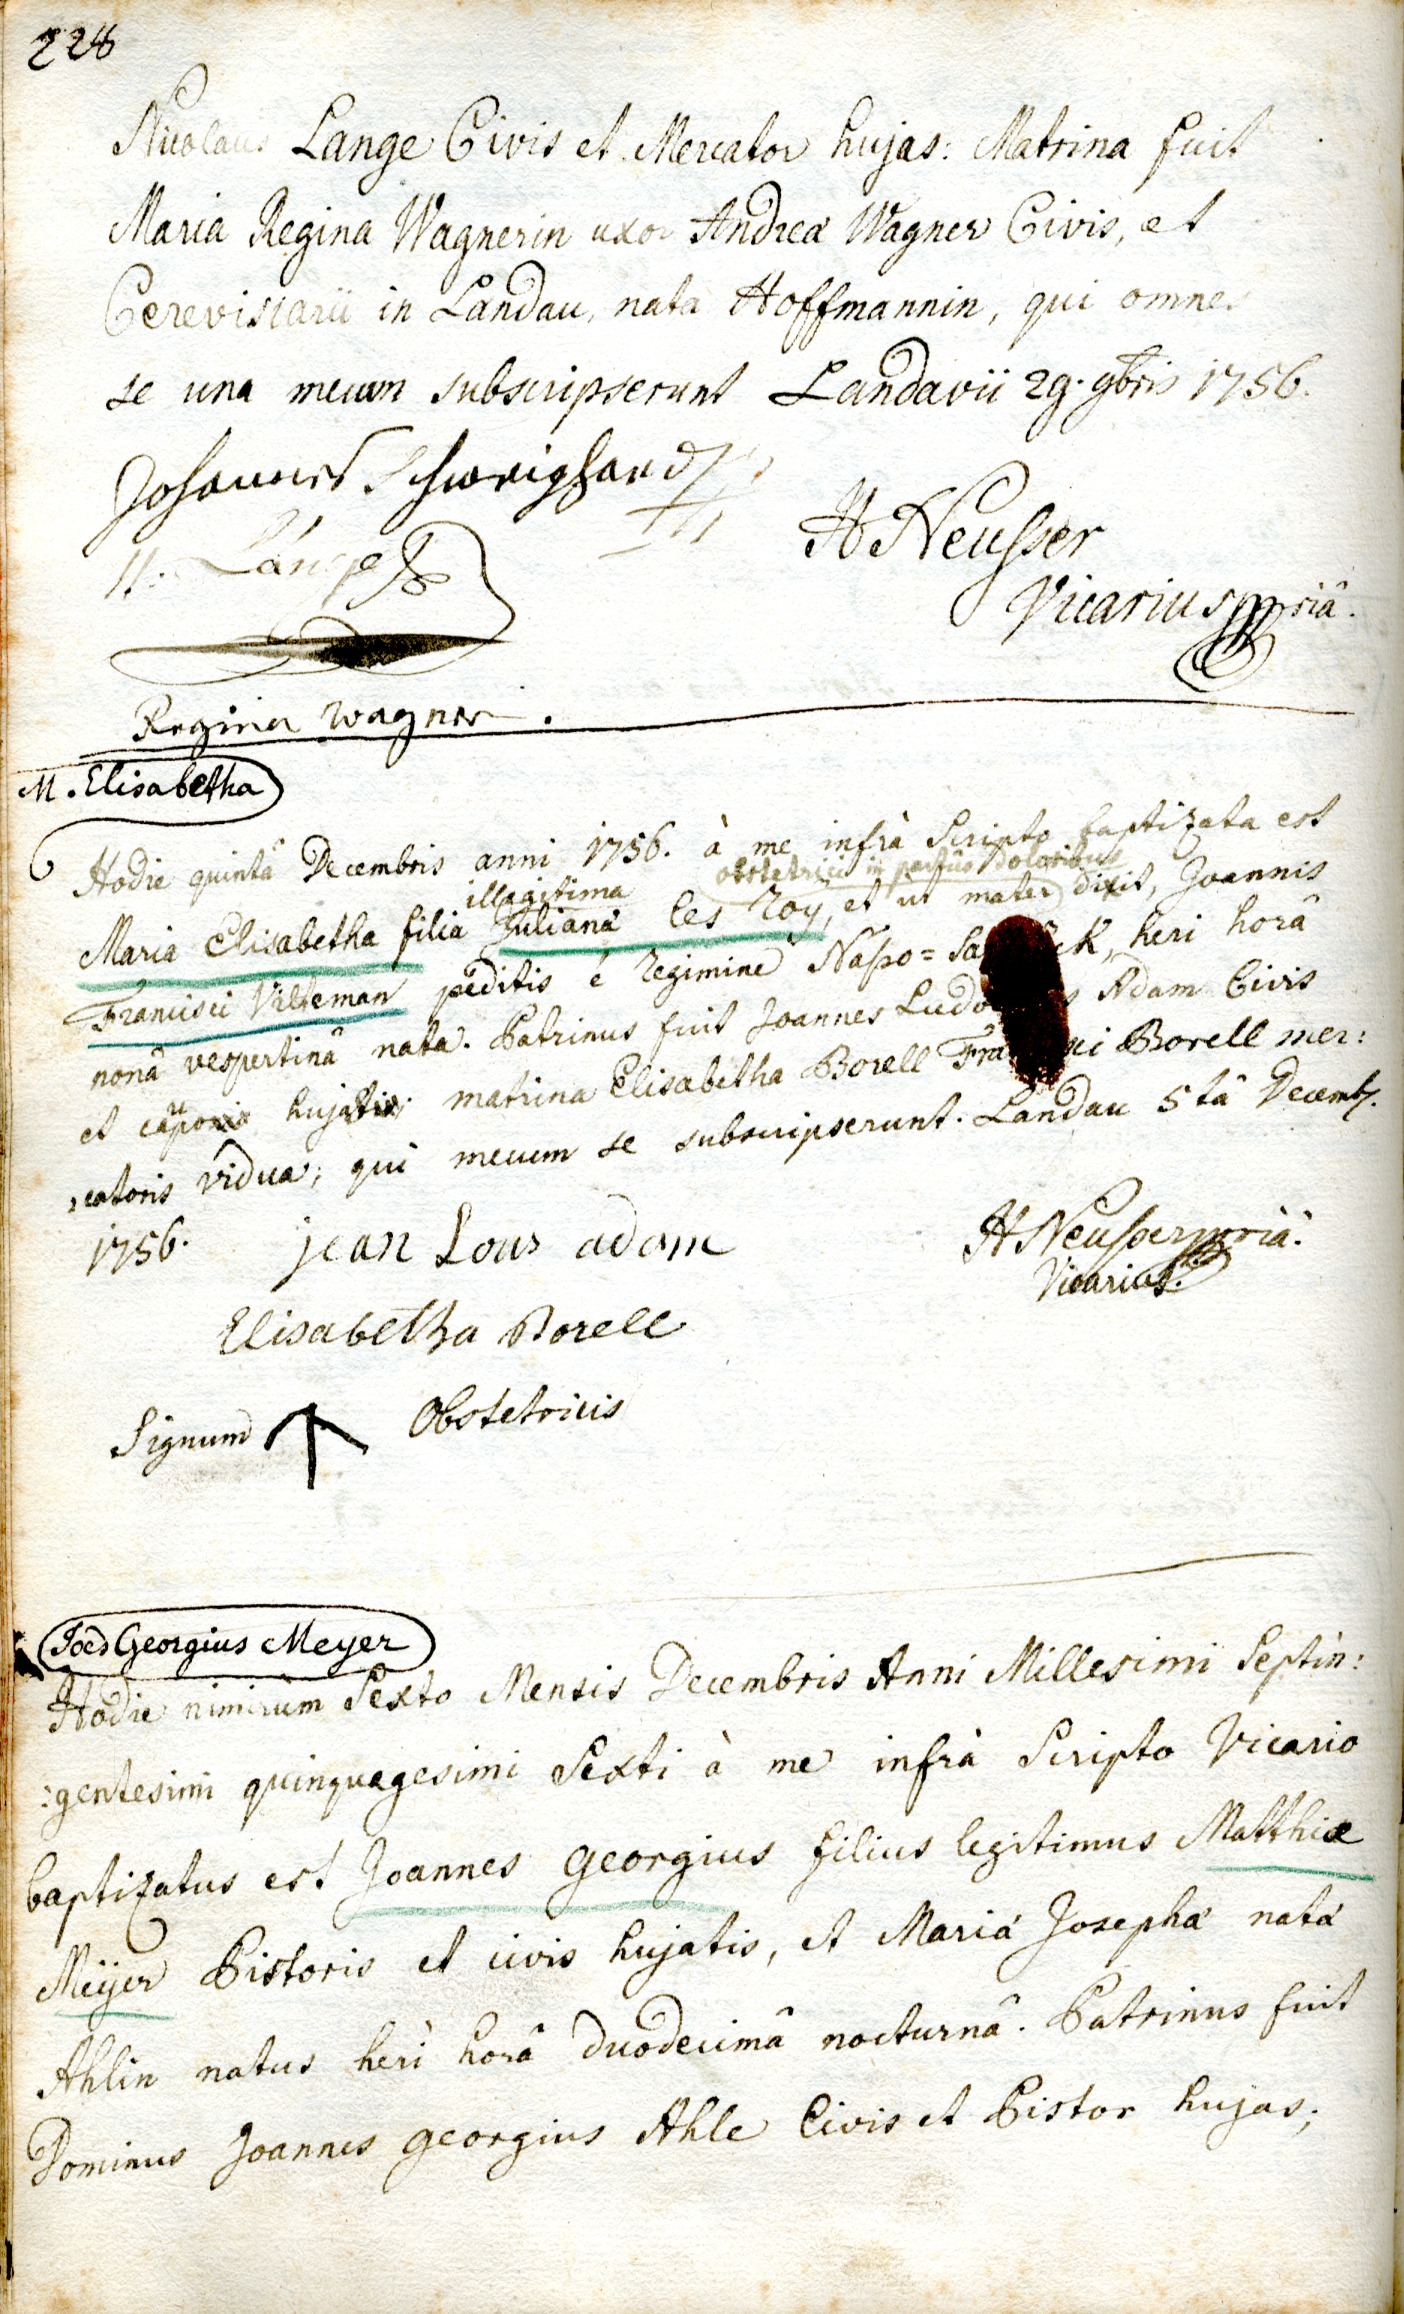 228
Nicolaus Lange Civis et Mercator hujas: Matrina fuit
Maria Regina Wagnerin uxor Andreæ Wagner Civis, et
Cerevisiarii in Landau, nata Hoffmannin, qui omnes
se una mecum subscripserunt Landavii 29. 9bris 1756.
Johannes Schweighard
N. Lange
H Neusser
Vicarius mpriâ.
Regina Wagner.
M. Elisabetha
Hodie quintâ Decembris anni 1756. à me infrà Scripto baptizata est
illegitima obstetrici in partûs doloribus
Maria Elisabetha filia Julianæ les Roy, et ut mater dixit, Joannis
Francisci Villeman peditis è Regimine Nasso= Sa k, heri horâ
nonâ vespertinâ nata. Patrinus fuit Joannes Ludo s Adam Civis
et hujatis; matrina Elisabetha Borell Fra ci Borell mer:
catoris vidua; qui mecum se subscripserunt. Landau 5tâ Decemb.
1756. jean Lous adam
H Neusser mpriâ.
Vicarius.
Elisabetha Borell
Signum Obstetricis
Joes Georgius Meyer
Hodie nimirùm Sexto Mensis Decembris Anni Millesimi Septin:
:gentesimi quinquagesimi Sexti à me infrà Scripto Vicario
baptizatus est Joannes Georgius filius legitimus Matthiæ
Meÿer Pistoris et civis hujatis, et Mariæ Josephæ natæ
Ahlin natus heri horâ duodecimâ nocturnâ. Patrinus fuit
Dominus Joannes georgius Ahle Civis et Pistor hujas;